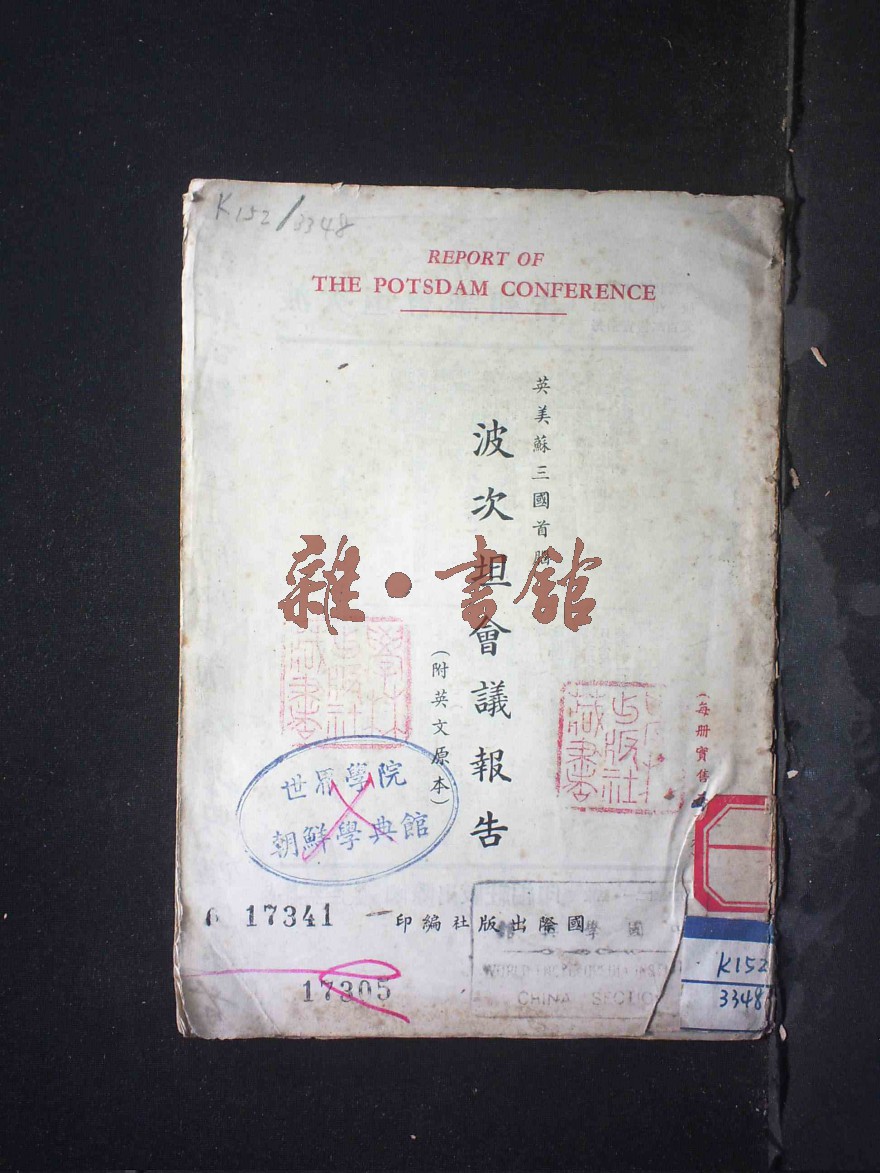 K152/3348
REPORT OF
THE POTSDAM CONFERENCE
英美蘇三國首腦
波次坦會議報告
(附英文原本)
雜·書館
(每册實售
世界學院
朝鮮學典館
6 17341
印編社版出際國
17305
學國
CHINA SECTION
K152
3348